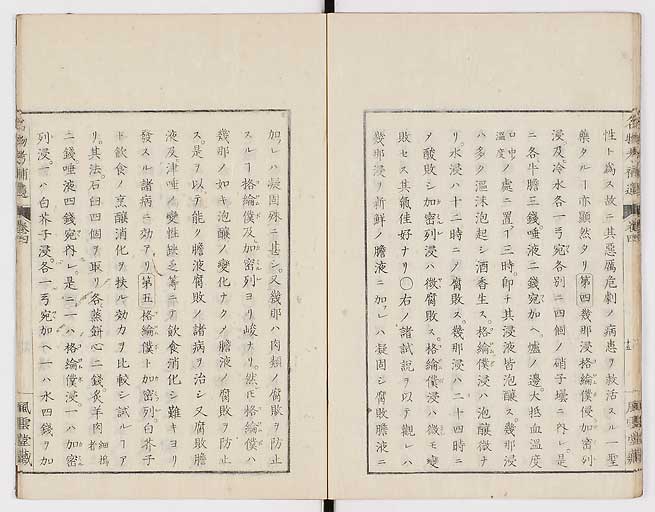 性ト為ス故ニ其惡厲危劇ノ病患ヲ救活スル一聖
藥タルヿ亦顯然タリ第四幾那浸格綸僕浸加密列
浸及冷水各一弓宛各別ニ四個ノ硝子壜ニ内レ是
ニ各牛膽三錢唾液二錢宛加ヘ爐ノ邊大抵血温度
ロ中ノ温度ノ處ニ置ヿ三時即チ其浸液皆泡釀ス幾那浸
ハ多ク漚沫泡起シ酒香生ス格綸僕浸ハ泡釀微ナ
リ水浸ハ十二時ニノ腐敗ス幾那浸ハ二十四時ニ
ノ酸敗シ加密列浸ハ微腐敗ス格綸僕浸ハ微モ變
敗セス其氣佳好ナリ○右ノ諸試説ヲ以テ觀レハ
幾那浸ヲ新鮮ノ膽液ニ加レハ凝固シ腐敗膽液ニ
加レハ凝固殊ニ甚シ又幾那ハ肉類ノ腐敗ヲ防止
スルヿ格綸僕及加密列ヨリ峻ナリ然モ格綸僕ハ
幾那ノ如キ泡釀ノ變化ナクノ膽液ノ腐敗ヲ防止
ス是ヲ以テ能ク膽液腐敗ノ諸病ヲ治シ又腐敗膽
液及津唾ノ變性缺乏等ニテ飲食消化シ難キヨリ
發スル諸病ニ効アリ第五格綸僕ト加密列白芥子
ト飲食ノ烹釀消化ヲ扶ル効力ヲ比較シ試ルヿア
リ其法石臼四個ヲ取リ各蒸餅心二錢炙羊肉細搗者
二錢唾液四錢宛内レ是ニ一ハ格綸僕浸一ハ加密
列浸一ハ白芥子浸各一弓宛加ヘ一ハ水四錢ヲ加
名物考補遺
卷四
風雲堂藏
名物考補遺
卷四
風雲堂藏